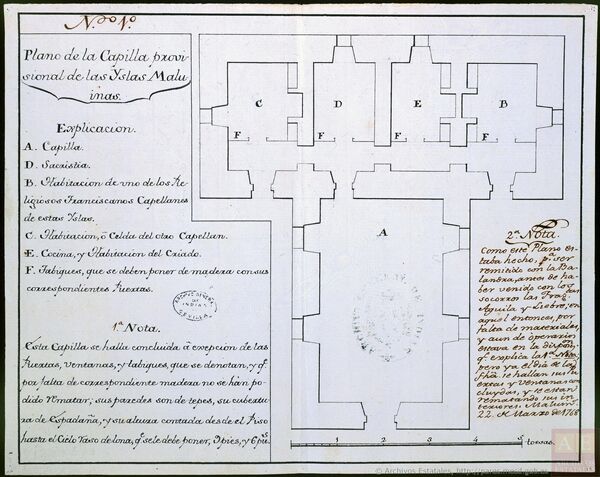 N.do 1.º
Plano de la Capilla provi-
sional de las Yslas Malu-
inas.
Explicacion.
A. Capilla.
D. Sacristia.
B. Habitacion de uno de los Re-
ligiosos Franciscanos Capellanes
de estas Yslas.
C. Habitacion, ò Celda del otro Capellan.
E. Cocina, y Habitacion del Criado.
F. Tabiques, que se deben poner de madera con sus
correspondientes Puertas.
ARCHIVO GENERAL
DE
INDIAS
SEVILLA
1.ª Nota.
Esta Capilla se halla concluida à excepcion de las
Puertas, ventanas, y tabiques, que se denotan, y q.e
por falta de correspondiente madera no se han po-
dido rematar; sus paredes son de tepes, su cubiertu-
ra de Espadaña, y su altura contada desde el Piso
hasta el Cielo raso de lona, q.e se le debe poner, 9 pies, y 6 pul.s
C
D
E
B
F
F
F
F
A
1 2 3 4 5 toesas.
2.ª Nota.
Como este Plano es-
taba hecho, p.a ser
remitido con la Ba-
landra, antes de ha-
ber venido con los
socorros las Frag.tas
Aguila y Liebre, en
aquel entonces, por
falta de materiales,
y aun de operarios
estava en la disp.on
q.e explica la 1.ª Nota
pero ya el dia de la
fha. se hallan sus Pu-
ertas y ventanas con-
cluydas, y se estan
rematando sus in-
teriores. Maluin.s
22. de Marzo de 1768
© Archivos Estatales, http://pares.mcd.gob.es